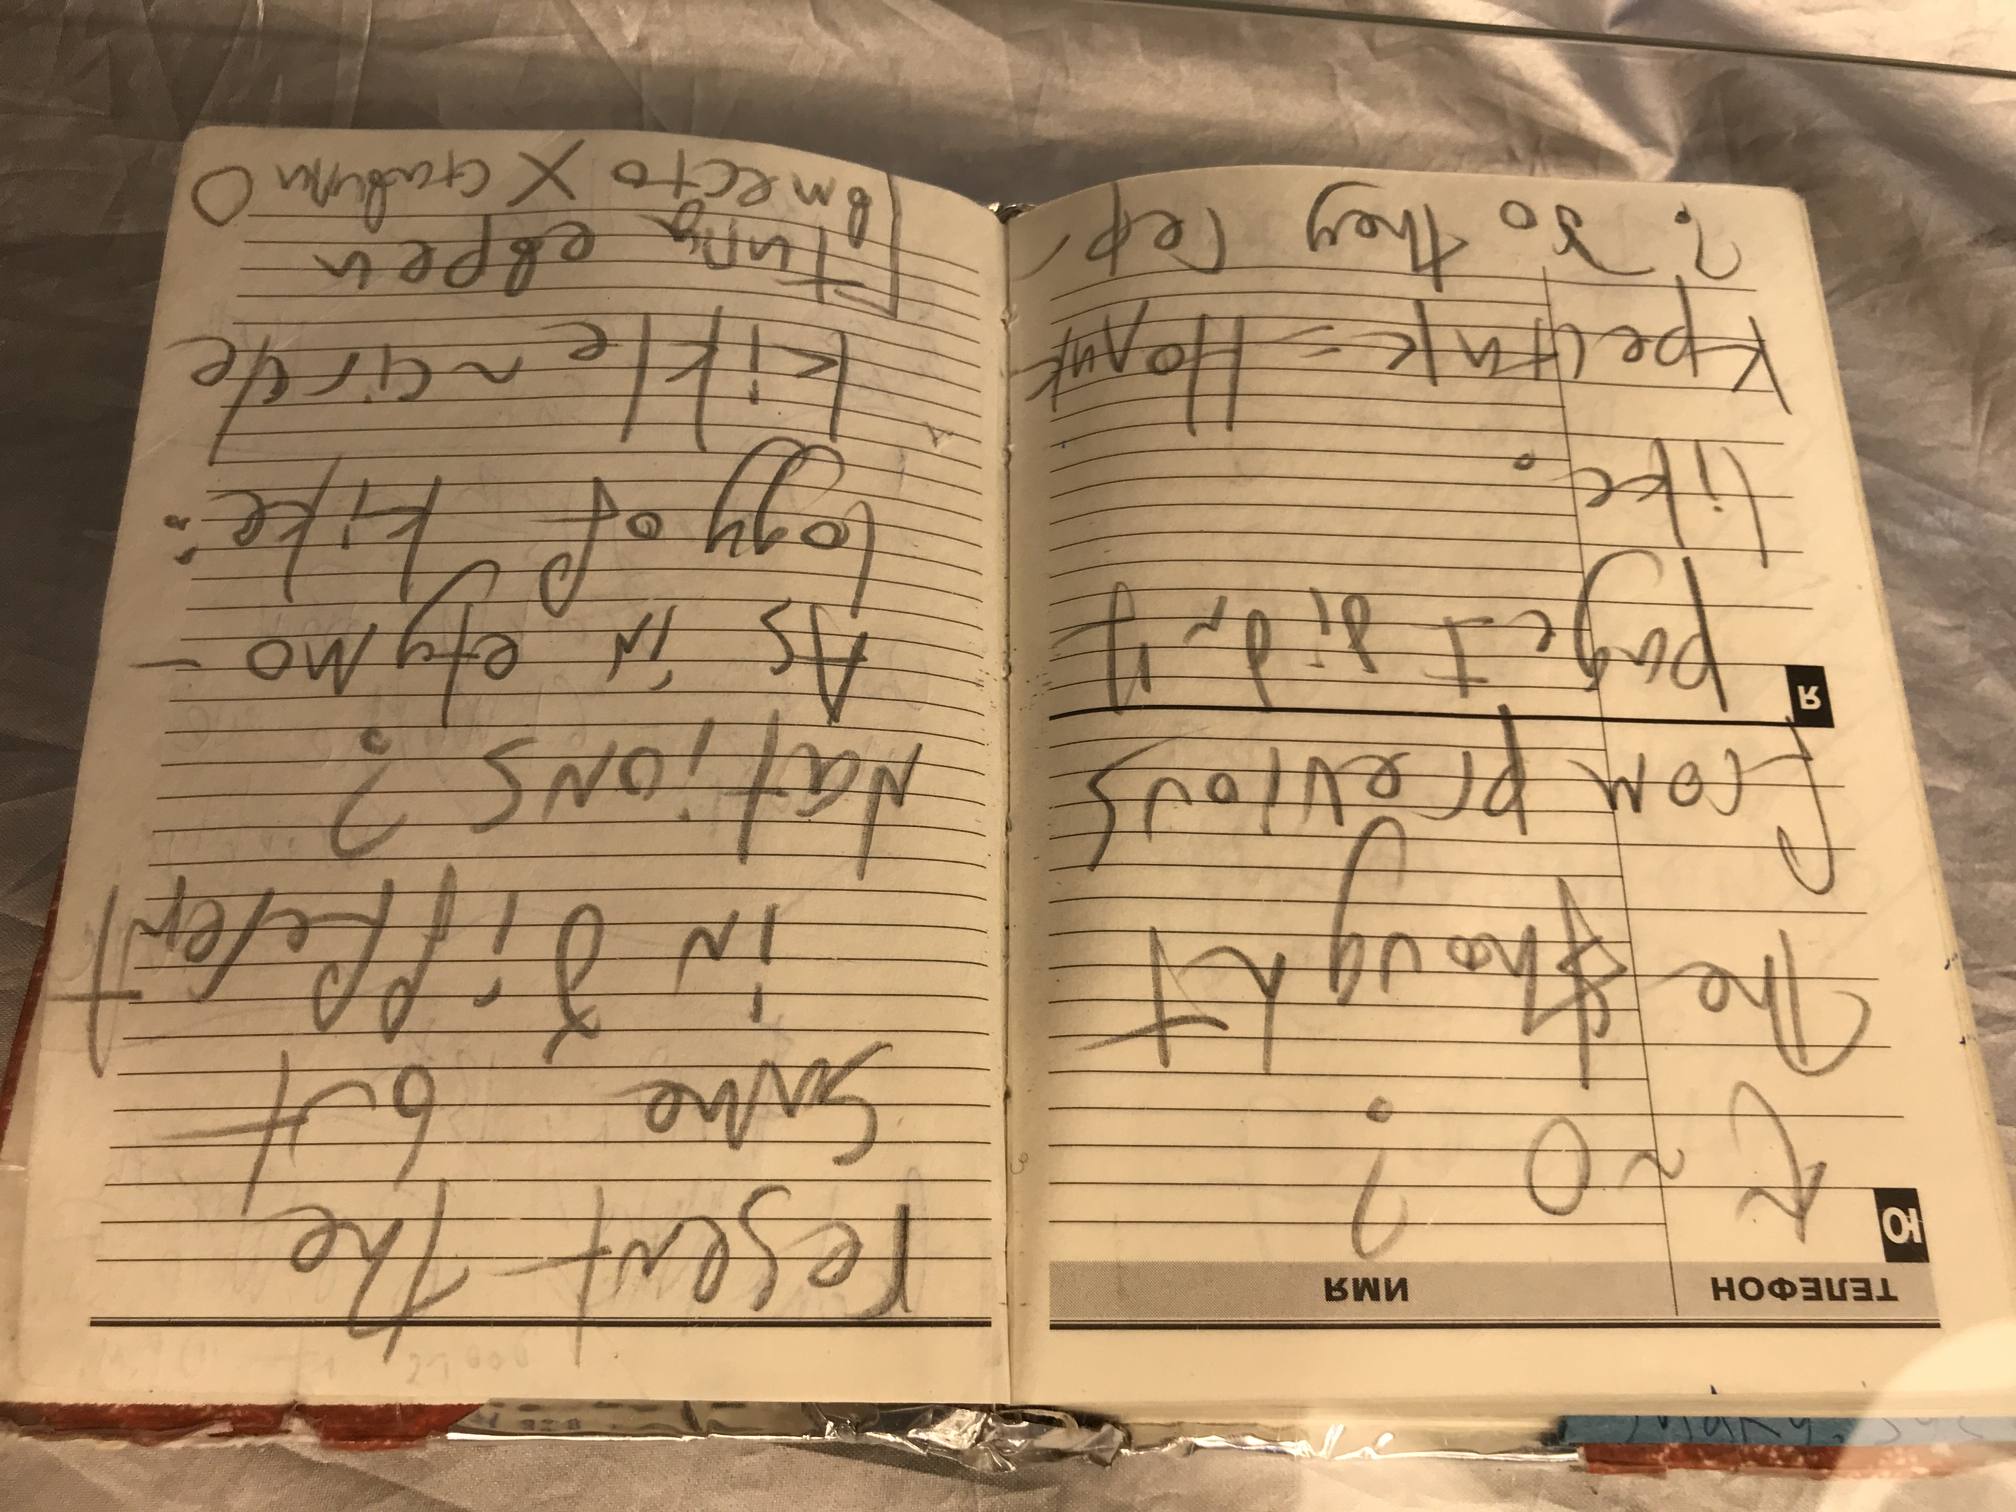 ТЕЛЕФОН ИМЯ
Ю
~ O ?
The thought
from previous
Я
page I didn't
like.
Крестик = Нолик
? So they rep-
resent the
same but
in different
Nations?
As in etymo-
logy of kike:
kikle ~ circle
типа евреи
вместо X ставили O